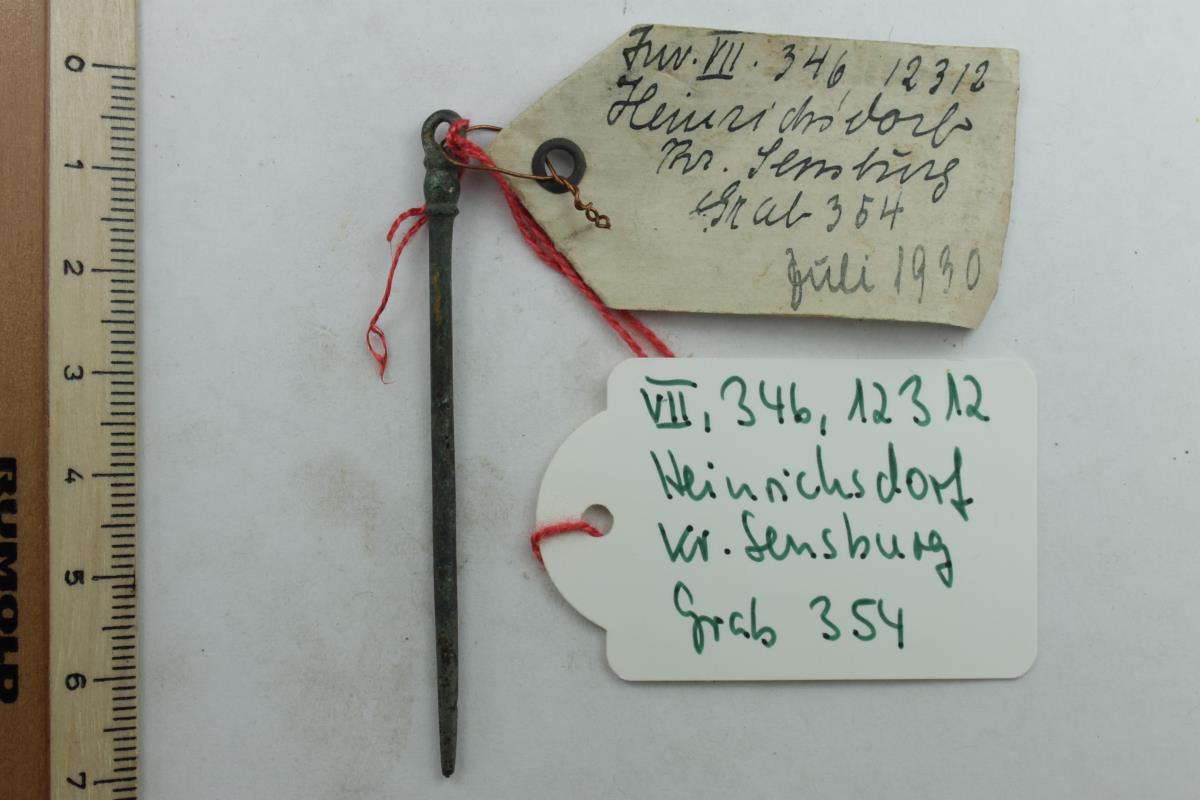 Inv. VII. 346, 12312
Heinrichsdorf
Kr. Sensburg
Grab 354
Juli 1930
VII, 346, 12312
Heinrichsdorf
Kr. Sensburg
Grab 354
0
1
2
3
4
5
6
7
RUMOLD